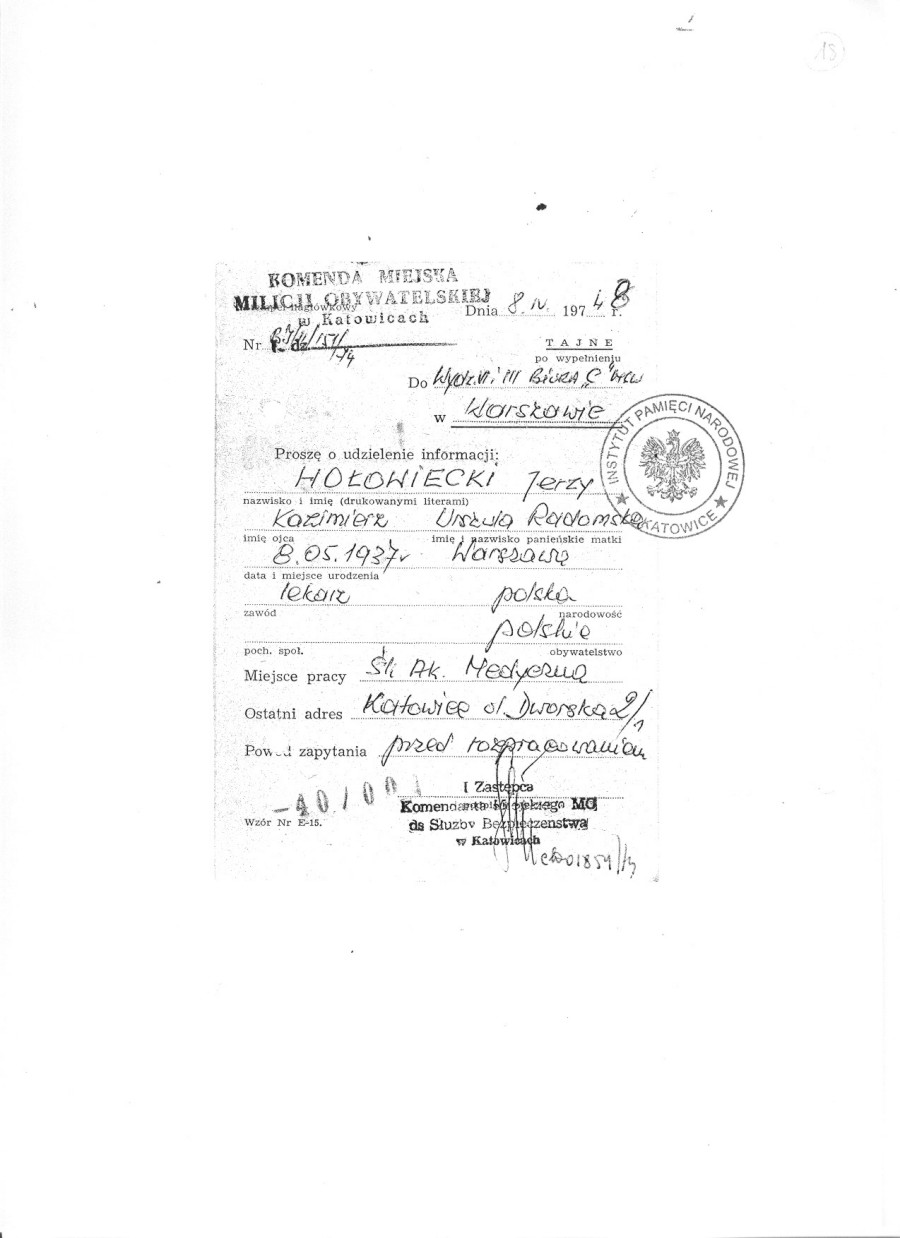 18
KOMENDA MIEJSKA
MILICJI OBYWATELSKIEJ
w Katowicach
Dnia 8 IV. 1974 r.
8
Nr
TAJNE
po wypełnieniu
Do Wydz. VI i III Biura „C" MSW
w Warszawie
INSTYTUT PAMIĘCI NARODOWEJ
KATOWICE
Proszę o udzielenie informacji:
HOŁOWIECKI Jerzy
nazwisko i imię (drukowanymi literami)
Kazimierz Urszula Radomska
imię ojca imię i nazwisko panieńskie matki
8.05.1937r Warszawa
data i miejsce urodzenia
lekarz polska
zawód narodowość
polskie
poch. społ. obywatelstwo
Miejsce pracy Śl. Ak. Medyczna
Ostatni adres Katowice ul. Dworska 2/1
Powód zapytania przed rozpracowaniem
I Zastępca
Komendanta Miejskiego MO
ds Służby Bezpieczeństwa
w Katowicach
Wzór Nr E-15.